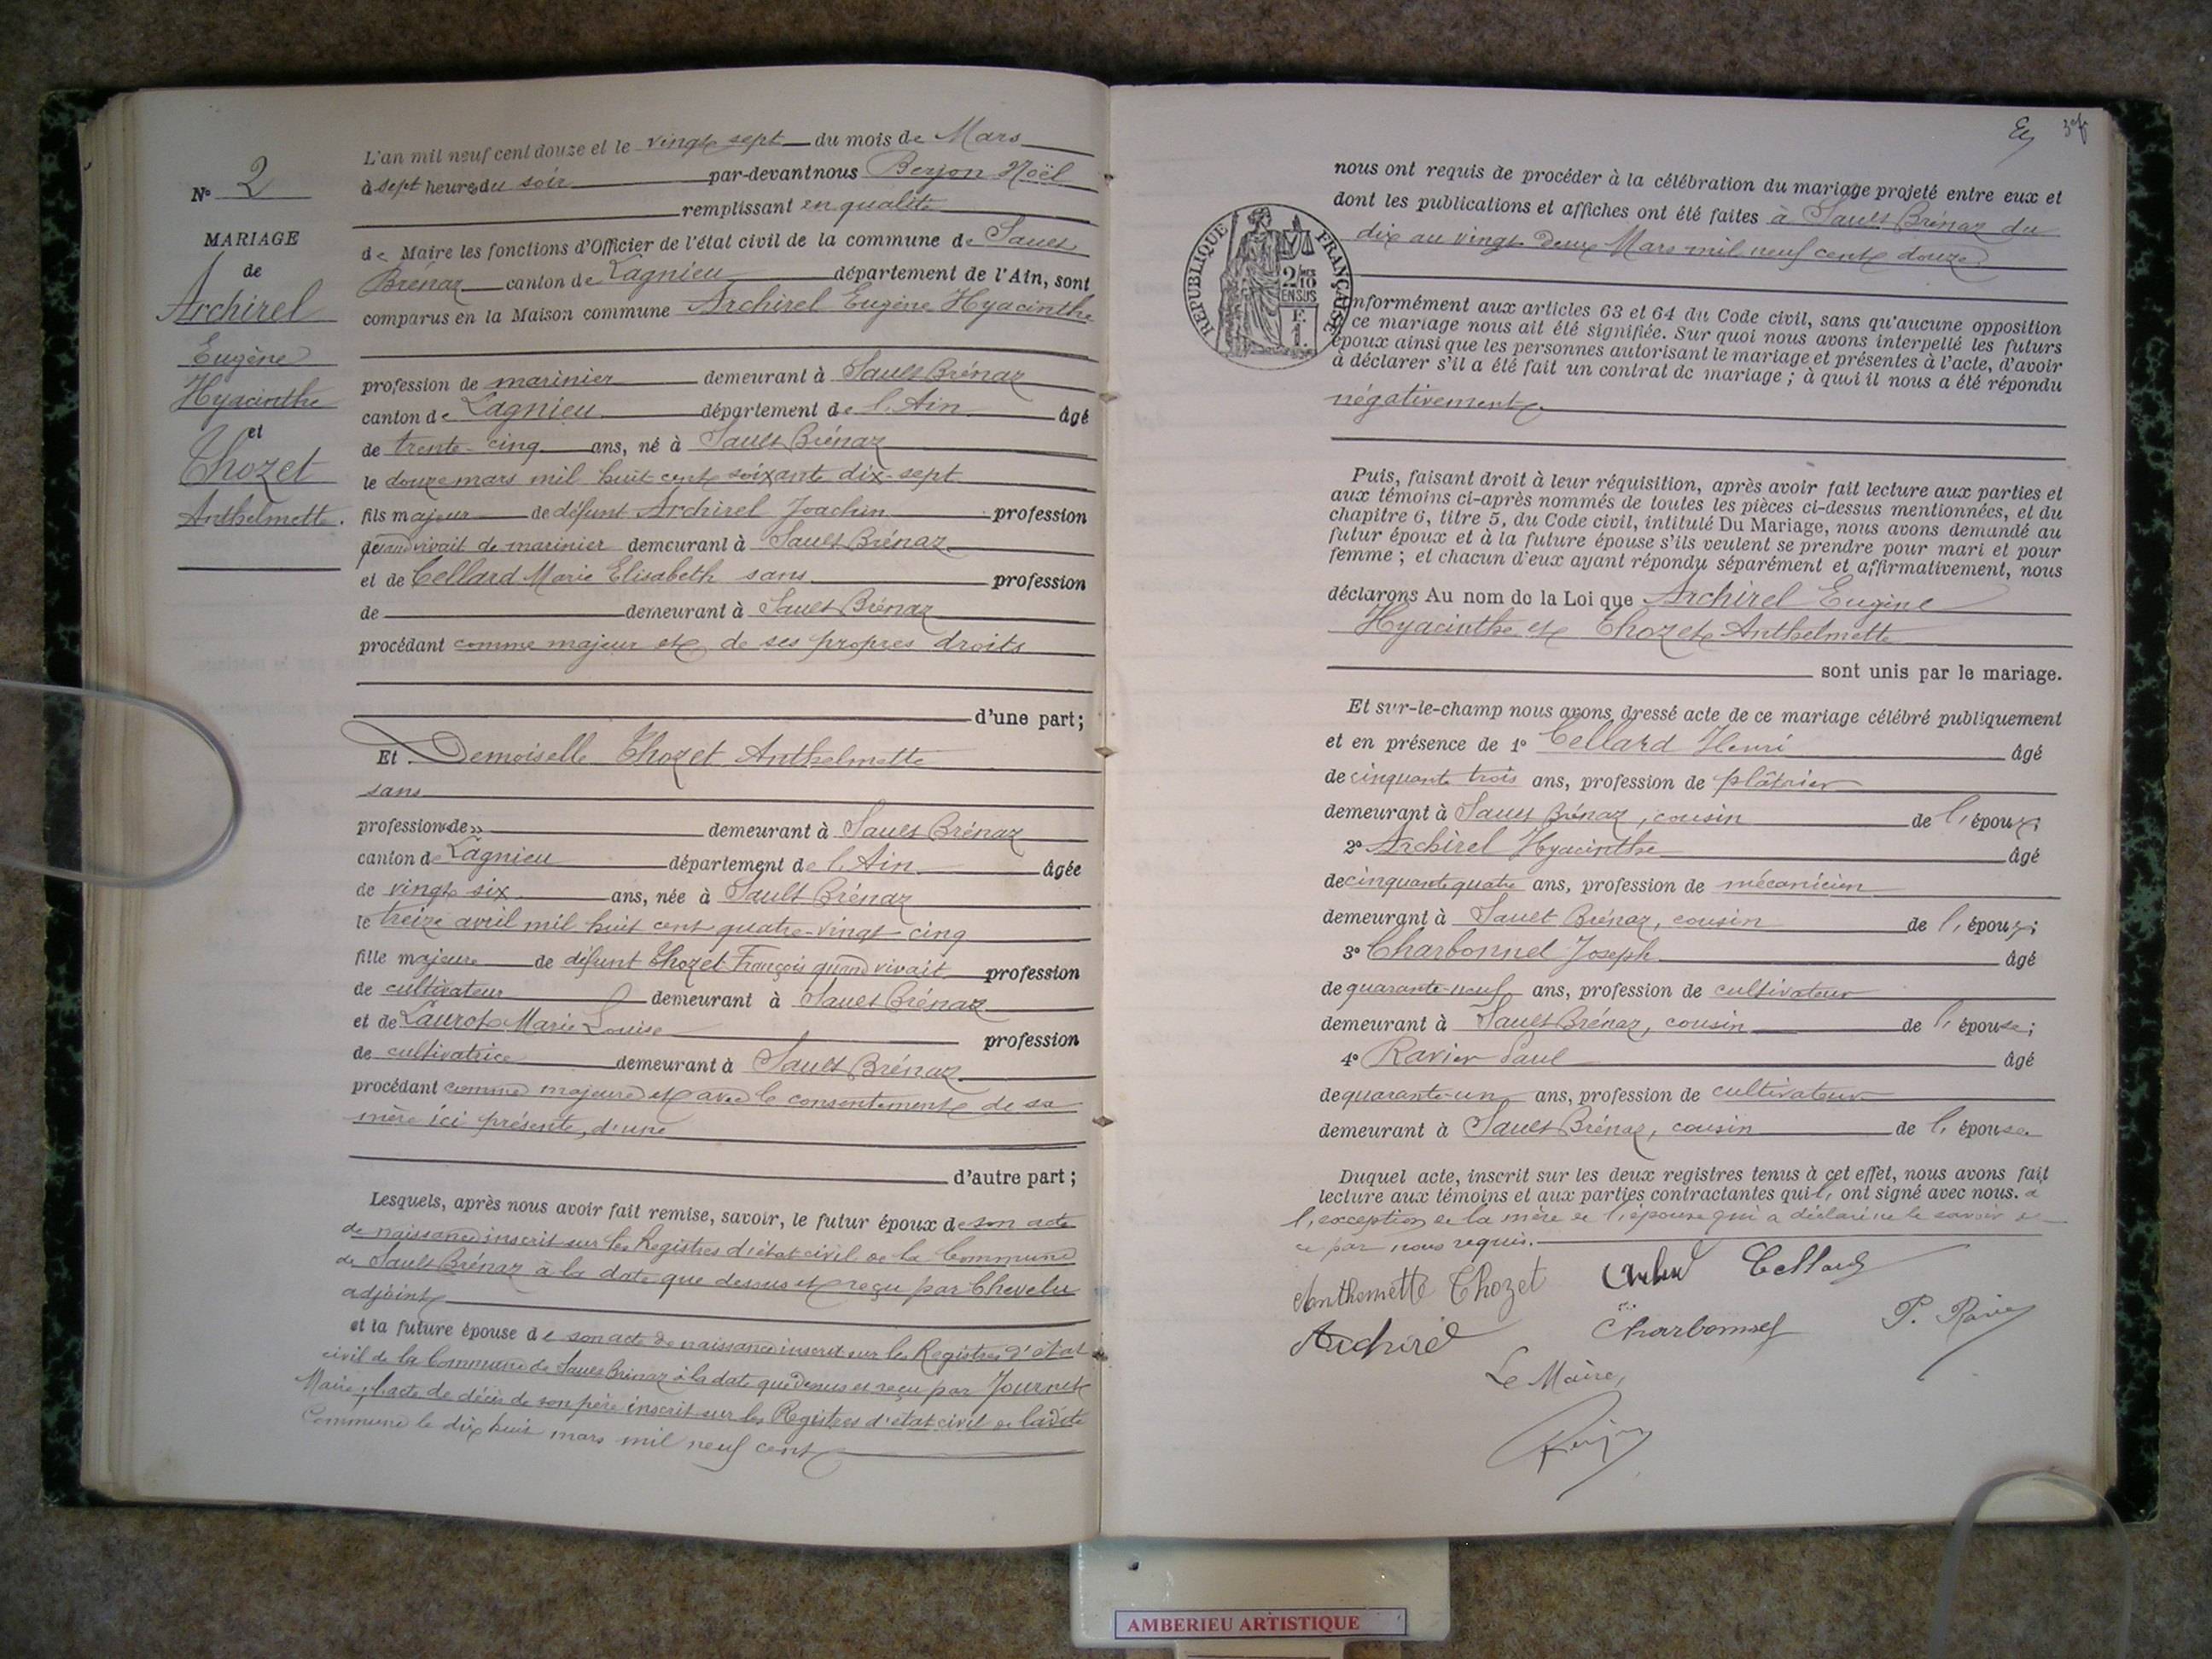 N° 2
MARIAGE
de
Archirel
Eugène
Hyacinthe
et
Thozet
Anthelmette.
L'an mil neuf cent douze et le vingt sept du mois de Mars
à sept heures du soir par-devant nous Berjon Noël
remplissant en qualité
de Maire les fonctions d'Officier de l'état civil de la commune de Sault
Brénaz canton de Lagnieu département de l'Ain, sont
comparus en la Maison commune Archirel Eugène Hyacinthe
profession de marinier demeurant à Sault Brénaz
canton de Lagnieu département de l'Ain âgé
de trente-cinq ans, né à Sault Brénaz
le douze mars mil huit cent soixante dix-sept
fils majeur de défunt Archirel Joachin profession
quand vivait de marinier demeurant à Sault Brénaz
et de Cellard Marie Elisabeth sans profession
de demeurant à Sault Brénaz
procédant comme majeur et de ses propres droits
d'une part;
Et Demoiselle Thozet Anthelmette
sans
profession «de» demeurant à Sault Brénaz
canton de Lagnieu département de l'Ain âgée
de vingt six ans, née à Sault Brénaz
le treize avril mil huit cent quatre-vingt-cinq
fille majeure de défunt Thozet François quand vivait profession
de cultivateur demeurant à Sault Brénaz
et de Laurot Marie Louise profession
de cultivatrice demeurant à Sault Brénaz
procédant comme majeure et avec le consentement de sa
mère ici présente, d'une
d'autre part;
Lesquels, après nous avoir fait remise, savoir, le futur époux de son acte
de naissance inscrit sur les Registres d'état civil de la Commune
de Sault Brénaz à la date que dessus et reçu par Chevelu
adjoint
et la future épouse de son acte de naissance inscrit sur les Registres d'état
civil de la Commune de Sault Brénaz à la date que dessus et reçu par Journet
Maire; l'acte de décès de son père inscrit sur les Registres d'état civil de ladite
Commune le dix huit mars mil neuf cent
nous ont requis de procéder à la célébration du mariage projeté entre eux et
dont les publications et affiches ont été faites à Sault Brénaz du
dix au vingt deux Mars mil neuf cent douze
RÉPUBLIQUE FRANÇAISE
2/10 EN SUS
F. 1.
onformément aux articles 63 et 64 du Code civil, sans qu'aucune opposition
ce mariage nous ait été signifiée. Sur quoi nous avons interpellé les futurs
époux ainsi que les personnes autorisant le mariage et présentes à l'acte, d'avoir
à déclarer s'il a été fait un contrat de mariage; à quoi il nous a été répondu
négativement.
Puis, faisant droit à leur réquisition, après avoir fait lecture aux parties et
aux témoins ci-après nommés de toutes les pièces ci-dessus mentionnées, et du
chapitre 6, titre 5, du Code civil, intitulé Du Mariage, nous avons demandé au
futur époux et à la future épouse s'ils veulent se prendre pour mari et pour
femme; et chacun d'eux ayant répondu séparément et affirmativement, nous
déclarons Au nom de la Loi que Archirel Eugène
Hyacinthe et Thozet Anthelmette
sont unis par le mariage.
Et sur-le-champ nous avons dressé acte de ce mariage célébré publiquement
et en présence de 1° Cellard Henri âgé
de cinquante trois ans, profession de plâtrier
demeurant à Sault Brénaz, cousin de l'époux;
2° Archirel Hyacinthe âgé
de cinquante quatre ans, profession de mécanicien
demeurant à Sault Brénaz, cousin de l'époux;
3° Charbonnel Joseph âgé
de quarante-neuf ans, profession de cultivateur
demeurant à Sault Brénaz, cousin de l'épouse;
4° Ravier Paul âgé
de quarante-un ans, profession de cultivateur
demeurant à Sault Brénaz, cousin de l'épouse.
Duquel acte, inscrit sur les deux registres tenus à cet effet, nous avons fait
lecture aux témoins et aux parties contractantes qui l'ont signé avec nous. à
l'exception de la mère de l'épouse qui a déclaré ne le savoir de
ce par nous requis.
Anthemette Thozet Cellard
Archirel Charbonnel P. Ravier
Le Maire,
AMBERIEU ARTISTIQUE